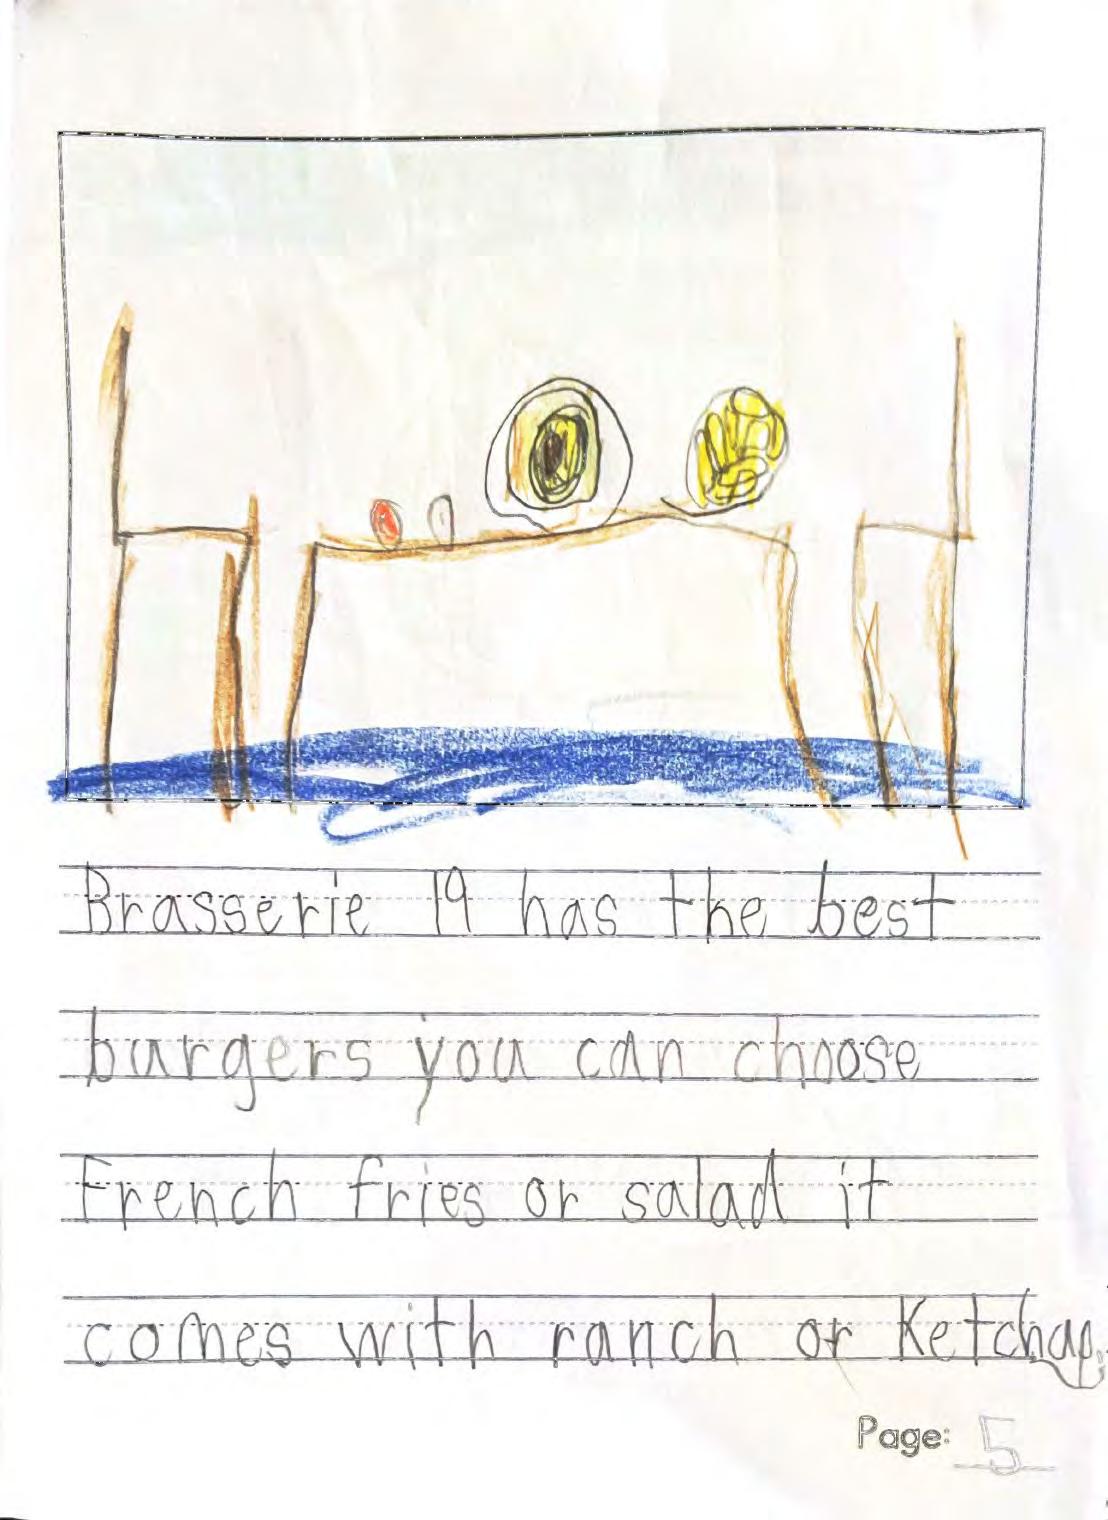 Brasserie 19 has the best
burgers you can choose
French fries or salad it
comes with ranch or Ketchup.
Page: 5